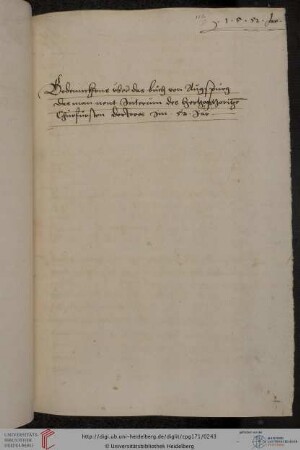 1.5.52. Jar.
Bedenncken über das buch von Augspurg
das man nent Interim des
Churfursten doctores im 52 Jar.
UNIVERSITÄTS-
BIBLIOTHEK
HEIDELBERG
http://digi.ub.uni-heidelberg.de/diglit/cpg171/0243
© Universitätsbibliothek Heidelberg